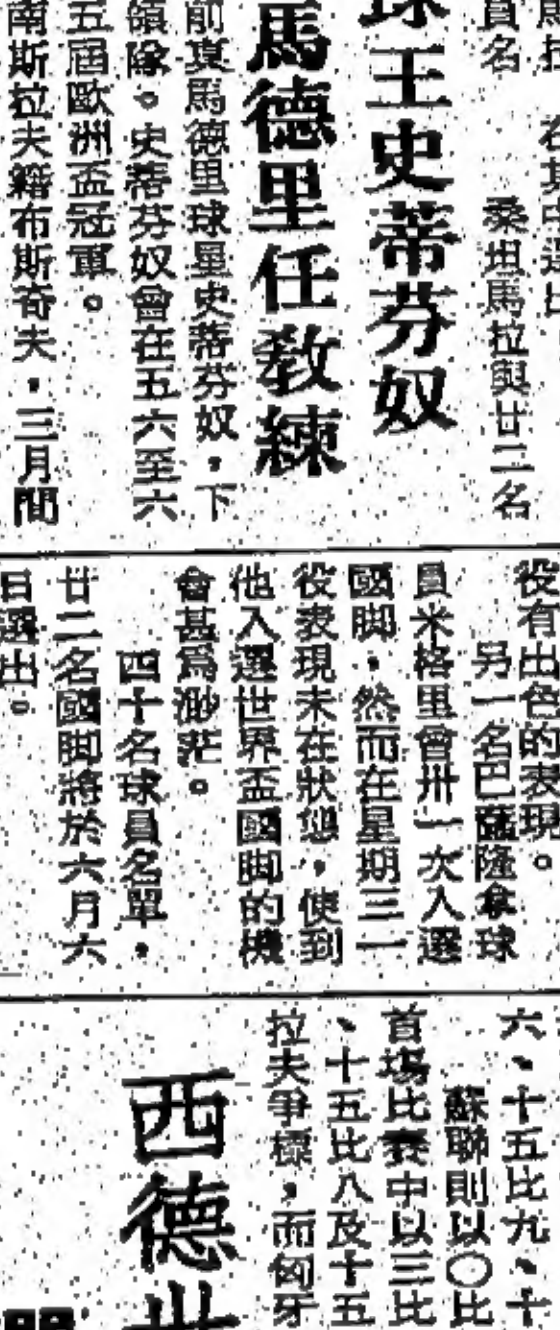 員名
桑坦馬拉與廿二名
球王史蒂芬奴
馬德里任教練
前㚖馬德里球星史蒂芬奴，下
領隊。史蒂芬奴曾在五六至六
五屆歐洲盃冠軍。
南斯拉夫籍布斯奇夫，三月間
役有出色的表現。
另一名巴薩隆拿球
員米格里曾卅一次入選
國脚，然而在星期三一
役表現未在狀態，使到
他入選世界盃國脚的機
會甚爲渺茫。
四十名球員名單，
廿二名國脚將於六月六
日選出。
六、十五比九、十
蘇聯則以〇比
首場比賽中以三比
、十五比八及十五
拉夫爭標，而匈牙
西德